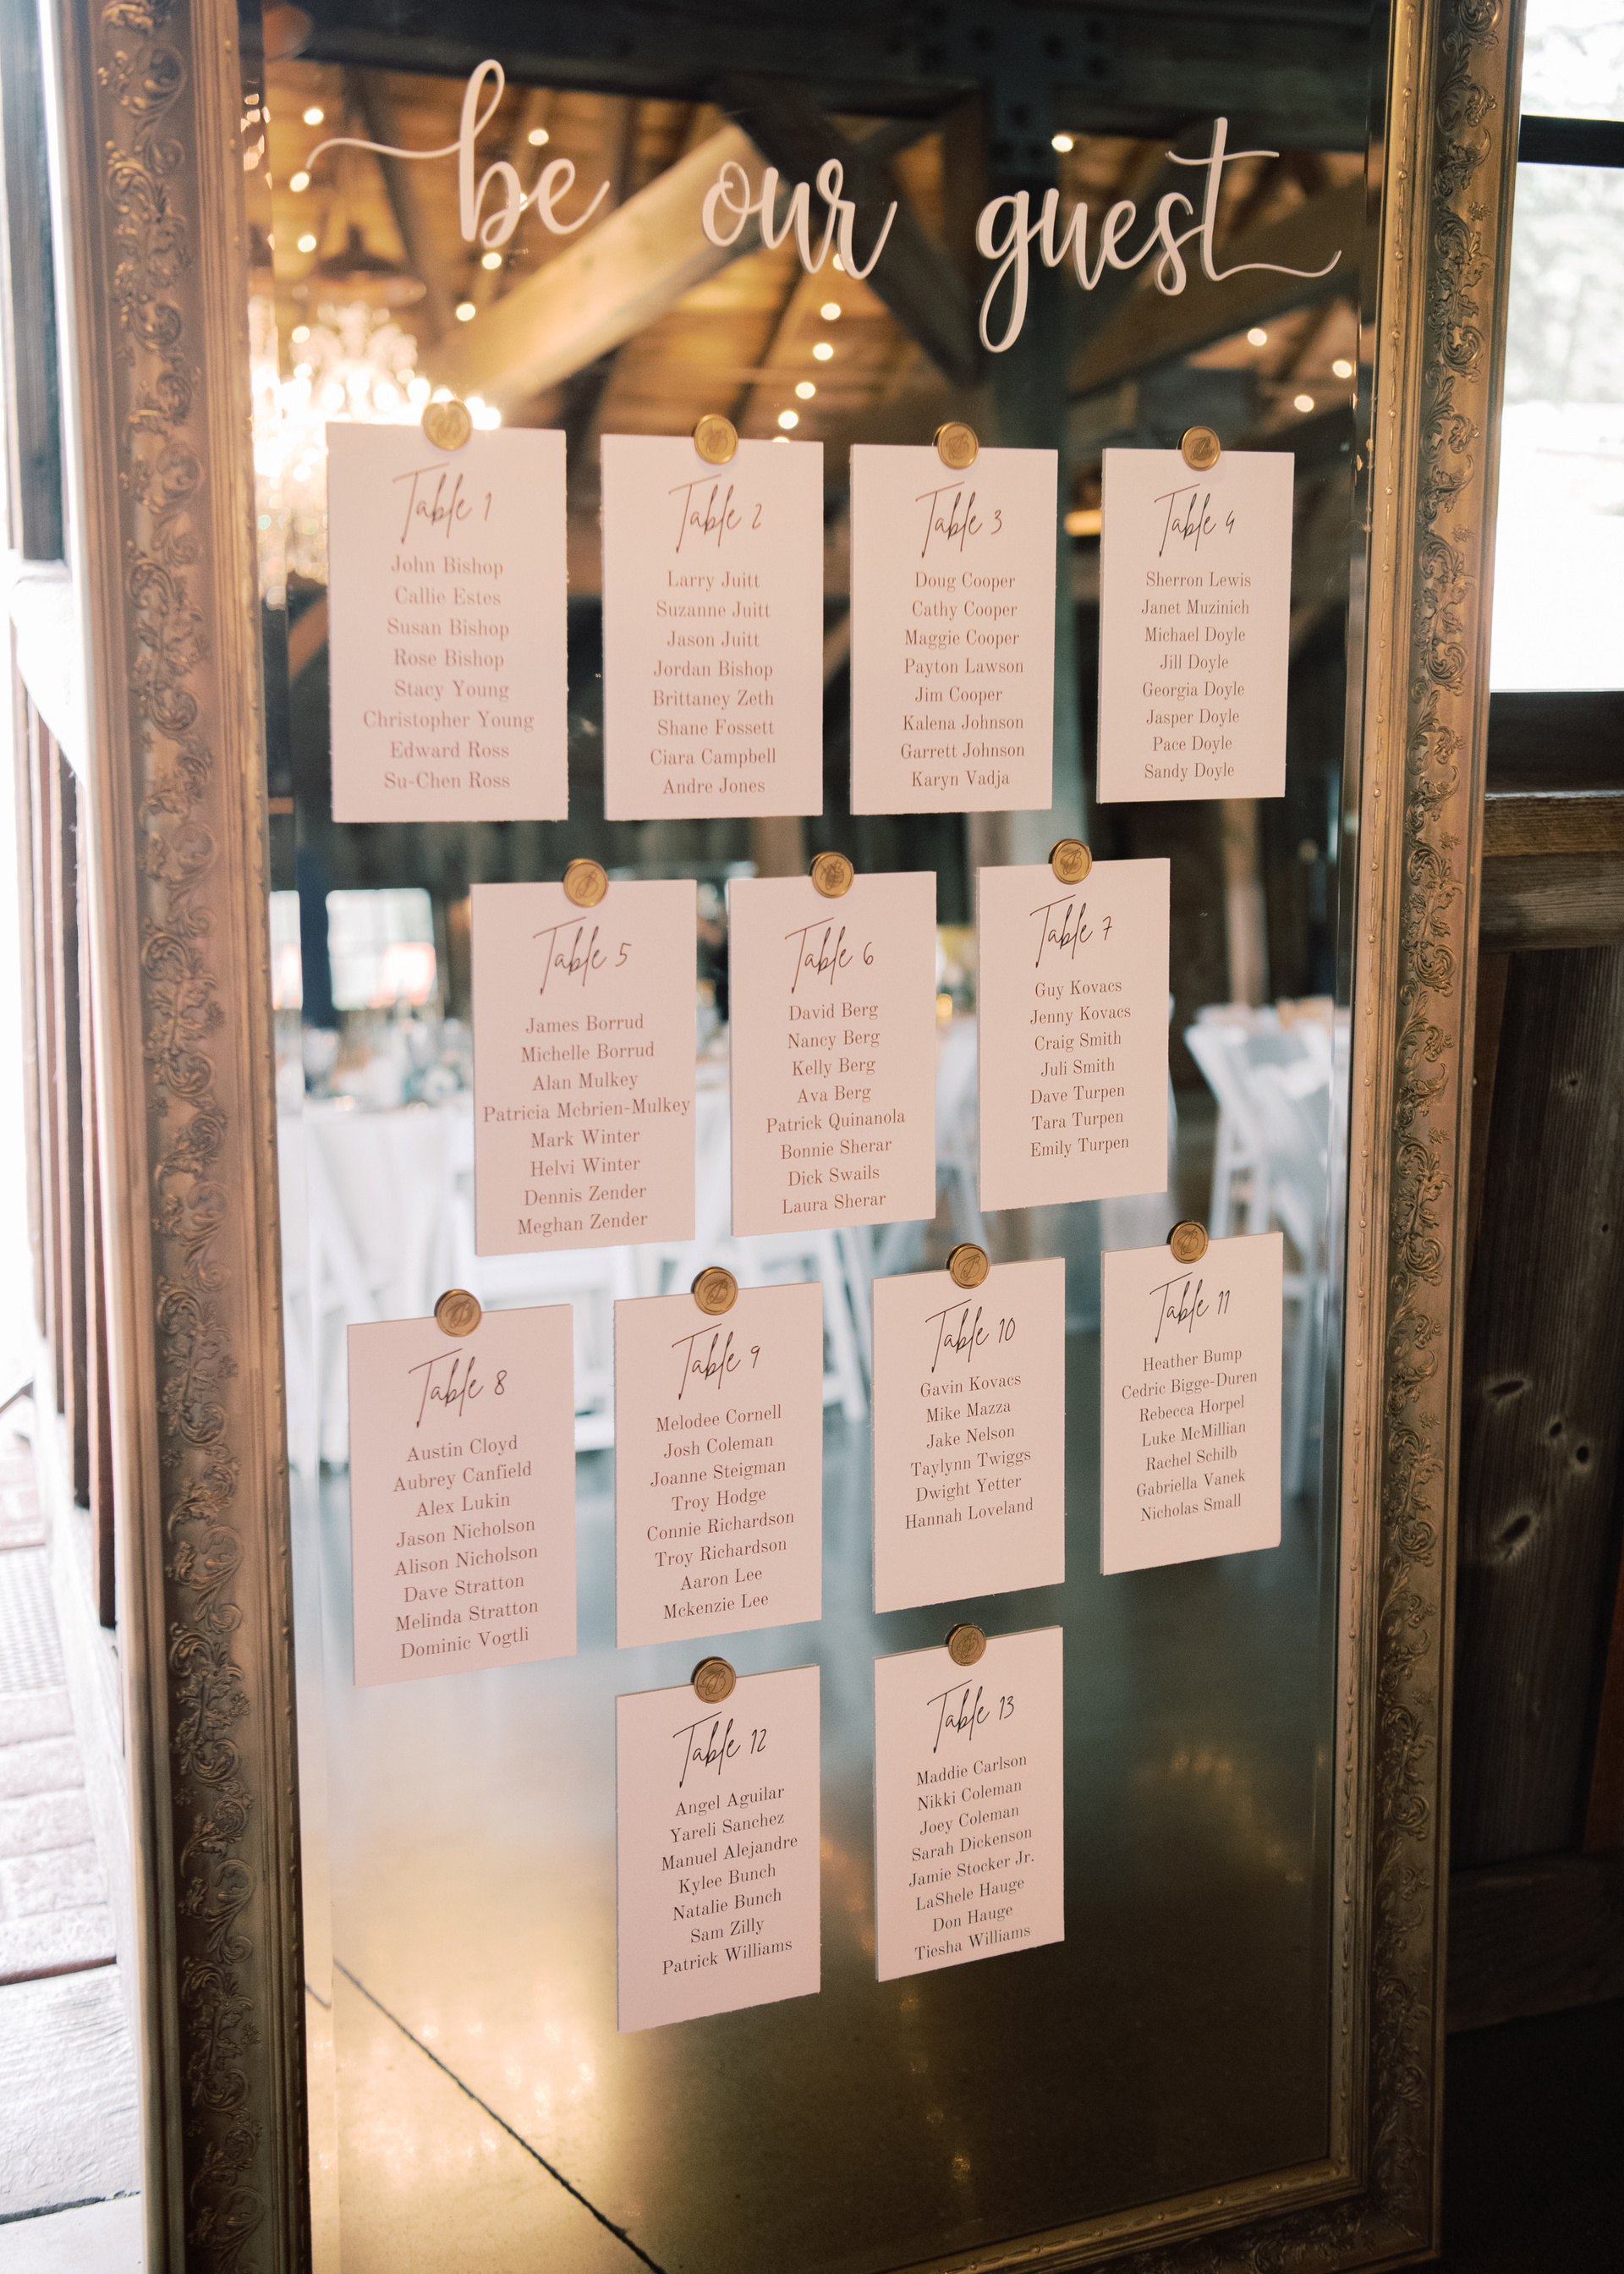 be our guest
Table 1
John Bishop
Callie Estes
Susan Bishop
Rose Bishop
Stacy Young
Christopher Young
Edward Ross
Su-Chen Ross
Table 2
Larry Juitt
Suzanne Juitt
Jason Juitt
Jordan Bishop
Brittaney Zeth
Shane Fossett
Ciara Campbell
Andre Jones
Table 3
Doug Cooper
Cathy Cooper
Maggie Cooper
Payton Lawson
Jim Cooper
Kalena Johnson
Garrett Johnson
Karyn Vadja
Table 4
Sherron Lewis
Janet Muzinich
Michael Doyle
Jill Doyle
Georgia Doyle
Jasper Doyle
Pace Doyle
Sandy Doyle
Table 5
James Borrud
Michelle Borrud
Alan Mulkey
Patricia Mcbrien-Mulkey
Mark Winter
Helvi Winter
Dennis Zender
Meghan Zender
Table 6
David Berg
Nancy Berg
Kelly Berg
Ava Berg
Patrick Quinanola
Bonnie Sherar
Dick Swails
Laura Sherar
Table 7
Guy Kovacs
Jenny Kovacs
Craig Smith
Juli Smith
Dave Turpen
Tara Turpen
Emily Turpen
Table 8
Austin Cloyd
Aubrey Canfield
Alex Lukin
Jason Nicholson
Alison Nicholson
Dave Stratton
Melinda Stratton
Dominic Vogtli
Table 9
Melodee Cornell
Josh Coleman
Joanne Steigman
Troy Hodge
Connie Richardson
Troy Richardson
Aaron Lee
Mckenzie Lee
Table 10
Gavin Kovacs
Mike Mazza
Jake Nelson
Taylynn Twiggs
Dwight Yetter
Hannah Loveland
Table 11
Heather Bump
Cedric Bigge-Duren
Rebecca Horpel
Luke McMillian
Rachel Schilb
Gabriella Vanek
Nicholas Small
Table 12
Angel Aguilar
Yareli Sanchez
Manuel Alejandre
Kylee Bunch
Natalie Bunch
Sam Zilly
Patrick Williams
Table 13
Maddie Carlson
Nikki Coleman
Joey Coleman
Sarah Dickenson
Jamie Stocker Jr.
LaShele Hauge
Don Hauge
Tiesha Williams